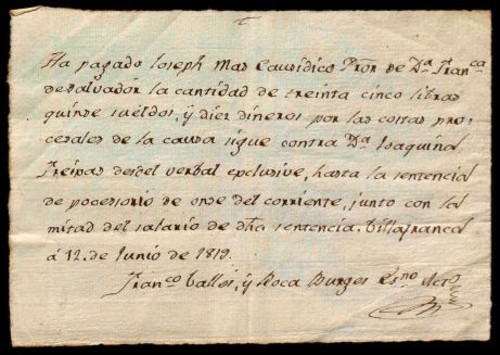 Ha pagado Joseph Mas Causidico Pror de Da. Franca
desalvador la cantidad de treinta cinco libras
quinse sueldos, y dier dineros por las costas pro-
cesales de la causa sigue contra Da. Joaquina
Freixas desdel verbal exclusive, hasta la sentencia
de pocessorio de onse del corriente, junto con la
mitad del salario de dha sentencia. Villafranca
á 12. de Junio de 1819.
Franco Valles, y Roca Burges Esno